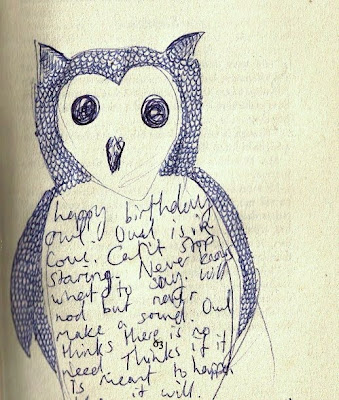 happy birthday
Owl. Owl is in
Cowl. Can't stop
Staring. Never knows
what to say. Will
nod but never
make a sound. Owl
thinks there is no
need. Thinks if it
is meant to happen
it will.